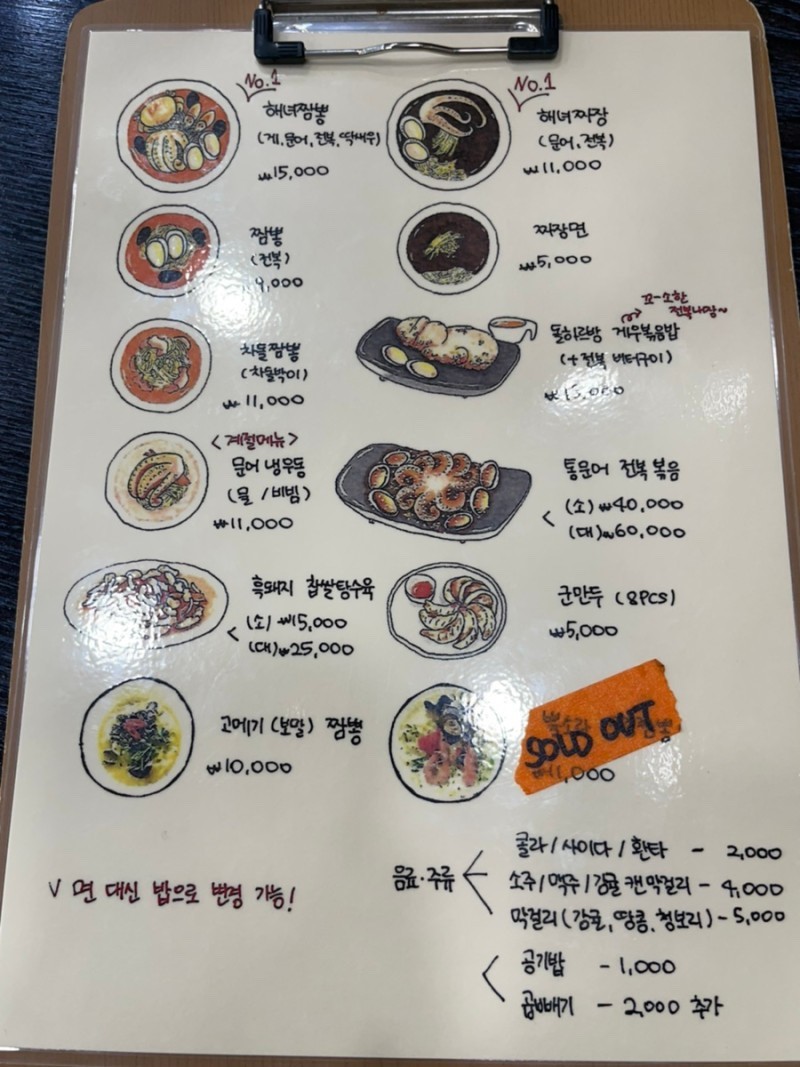 No.1
해녀짬뽕
(게, 문어, 전복, 딱새우)
₩15,000
No.1
해녀짜장
(문어, 전복)
₩11,000
짬뽕
(전복)
9,000
짜장면
₩5,000
차돌짬뽕
(차돌박이)
₩11,000
꼬-소한
전복내장~
돌하르방 게우볶음밥
(+전복 버터구이)
₩13,000
<계절메뉴>
문어 냉우동
(물 / 비빔)
₩11,000
통문어 전복 볶음
(소) ₩40,000
(대) ₩60,000
흑돼지 찹쌀탕수육
(소) ₩15,000
(대) ₩25,000
군만두 (8PCS)
₩5,000
고메기 (보말) 짬뽕
₩10,000
SOLD OUT
₩11,000
V 면 대신 밥으로 변경 가능!
음료·주류
콜라 / 사이다 / 환타 - 2,000
소주 / 맥주 / 감귤 캔막걸리 - 4,000
막걸리 (감귤, 땅콩, 청보리) - 5,000
공기밥 - 1,000
곱빼기 - 2,000 추가